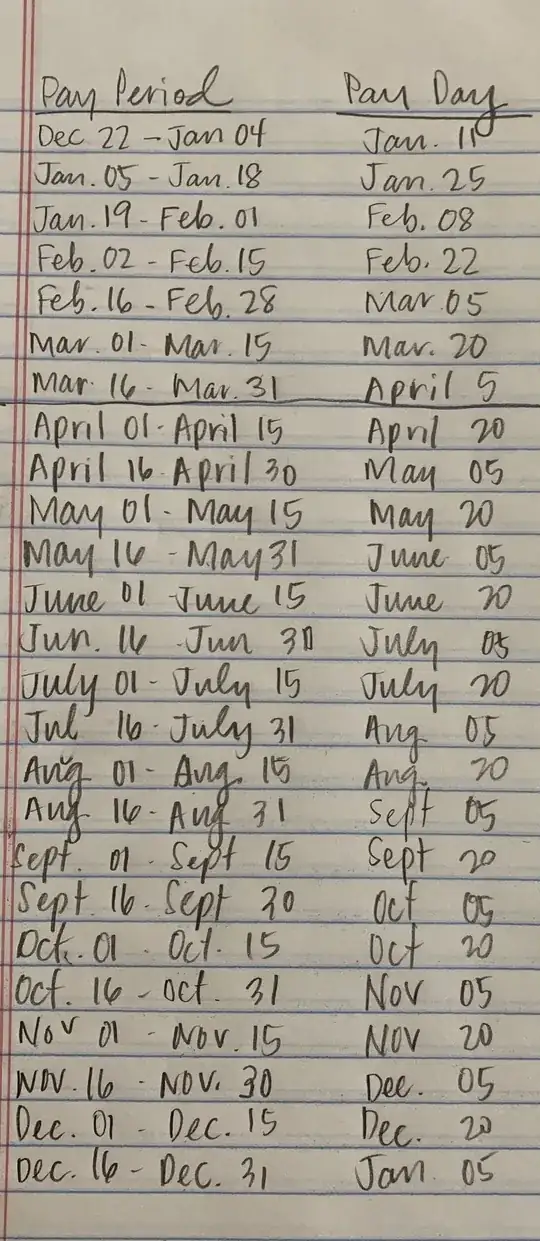 Pay Period Pay Day
Dec 22 - Jan 04 Jan. 11
Jan. 05 - Jan. 18 Jan. 25
Jan. 19 - Feb. 01 Feb. 08
Feb. 02 - Feb. 15 Feb. 22
Feb. 16 - Feb. 28 Mar 05
Mar. 01 - Mar. 15 Mar. 20
Mar. 16 - Mar. 31 April 5
April 01 - April 15 April 20
April 16 - April 30 May 05
May 01 - May 15 May 20
May 16 - May 31 June 05
June 01 - June 15 June 20
Jun. 16 - Jun 30 July 05
July 01 - July 15 July 20
Jul 16 - July 31 Aug 05
Aug 01 - Aug. 15 Aug. 20
Aug 16 - Aug 31 Sept 05
Sept. 01 - Sept 15 Sept 20
Sept 16 - Sept 30 Oct 05
Oct. 01 - Oct. 15 Oct 20
Oct. 16 - Oct. 31 Nov 05
Nov 01 - Nov. 15 Nov 20
Nov. 16 - Nov. 30 Dec. 05
Dec. 01 - Dec. 15 Dec. 20
Dec. 16 - Dec. 31 Jan 05